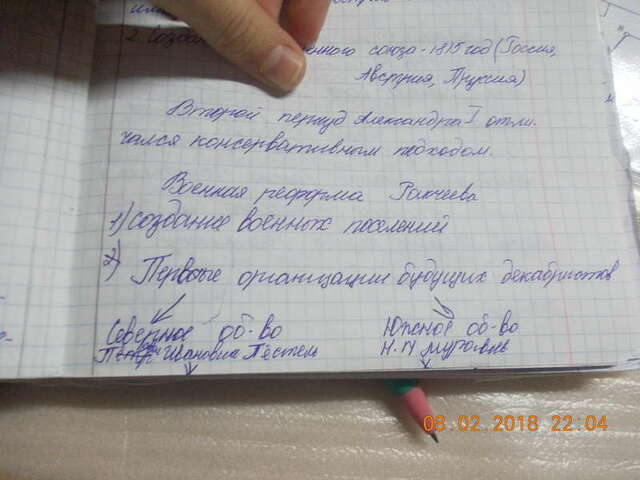 2. Созда енного союза - 1815 год (Россия,
Австрия, Пруссия)
Второй период Александра I отли-
чался консервативным подходом.
Военная реформа Ракчеева
1) создание военных поселений
2) Первые организации будущих декабристов
Северное об-во Южное об-во
Иванович Пестель Н. М Муравьь
08.02.2018 22:04